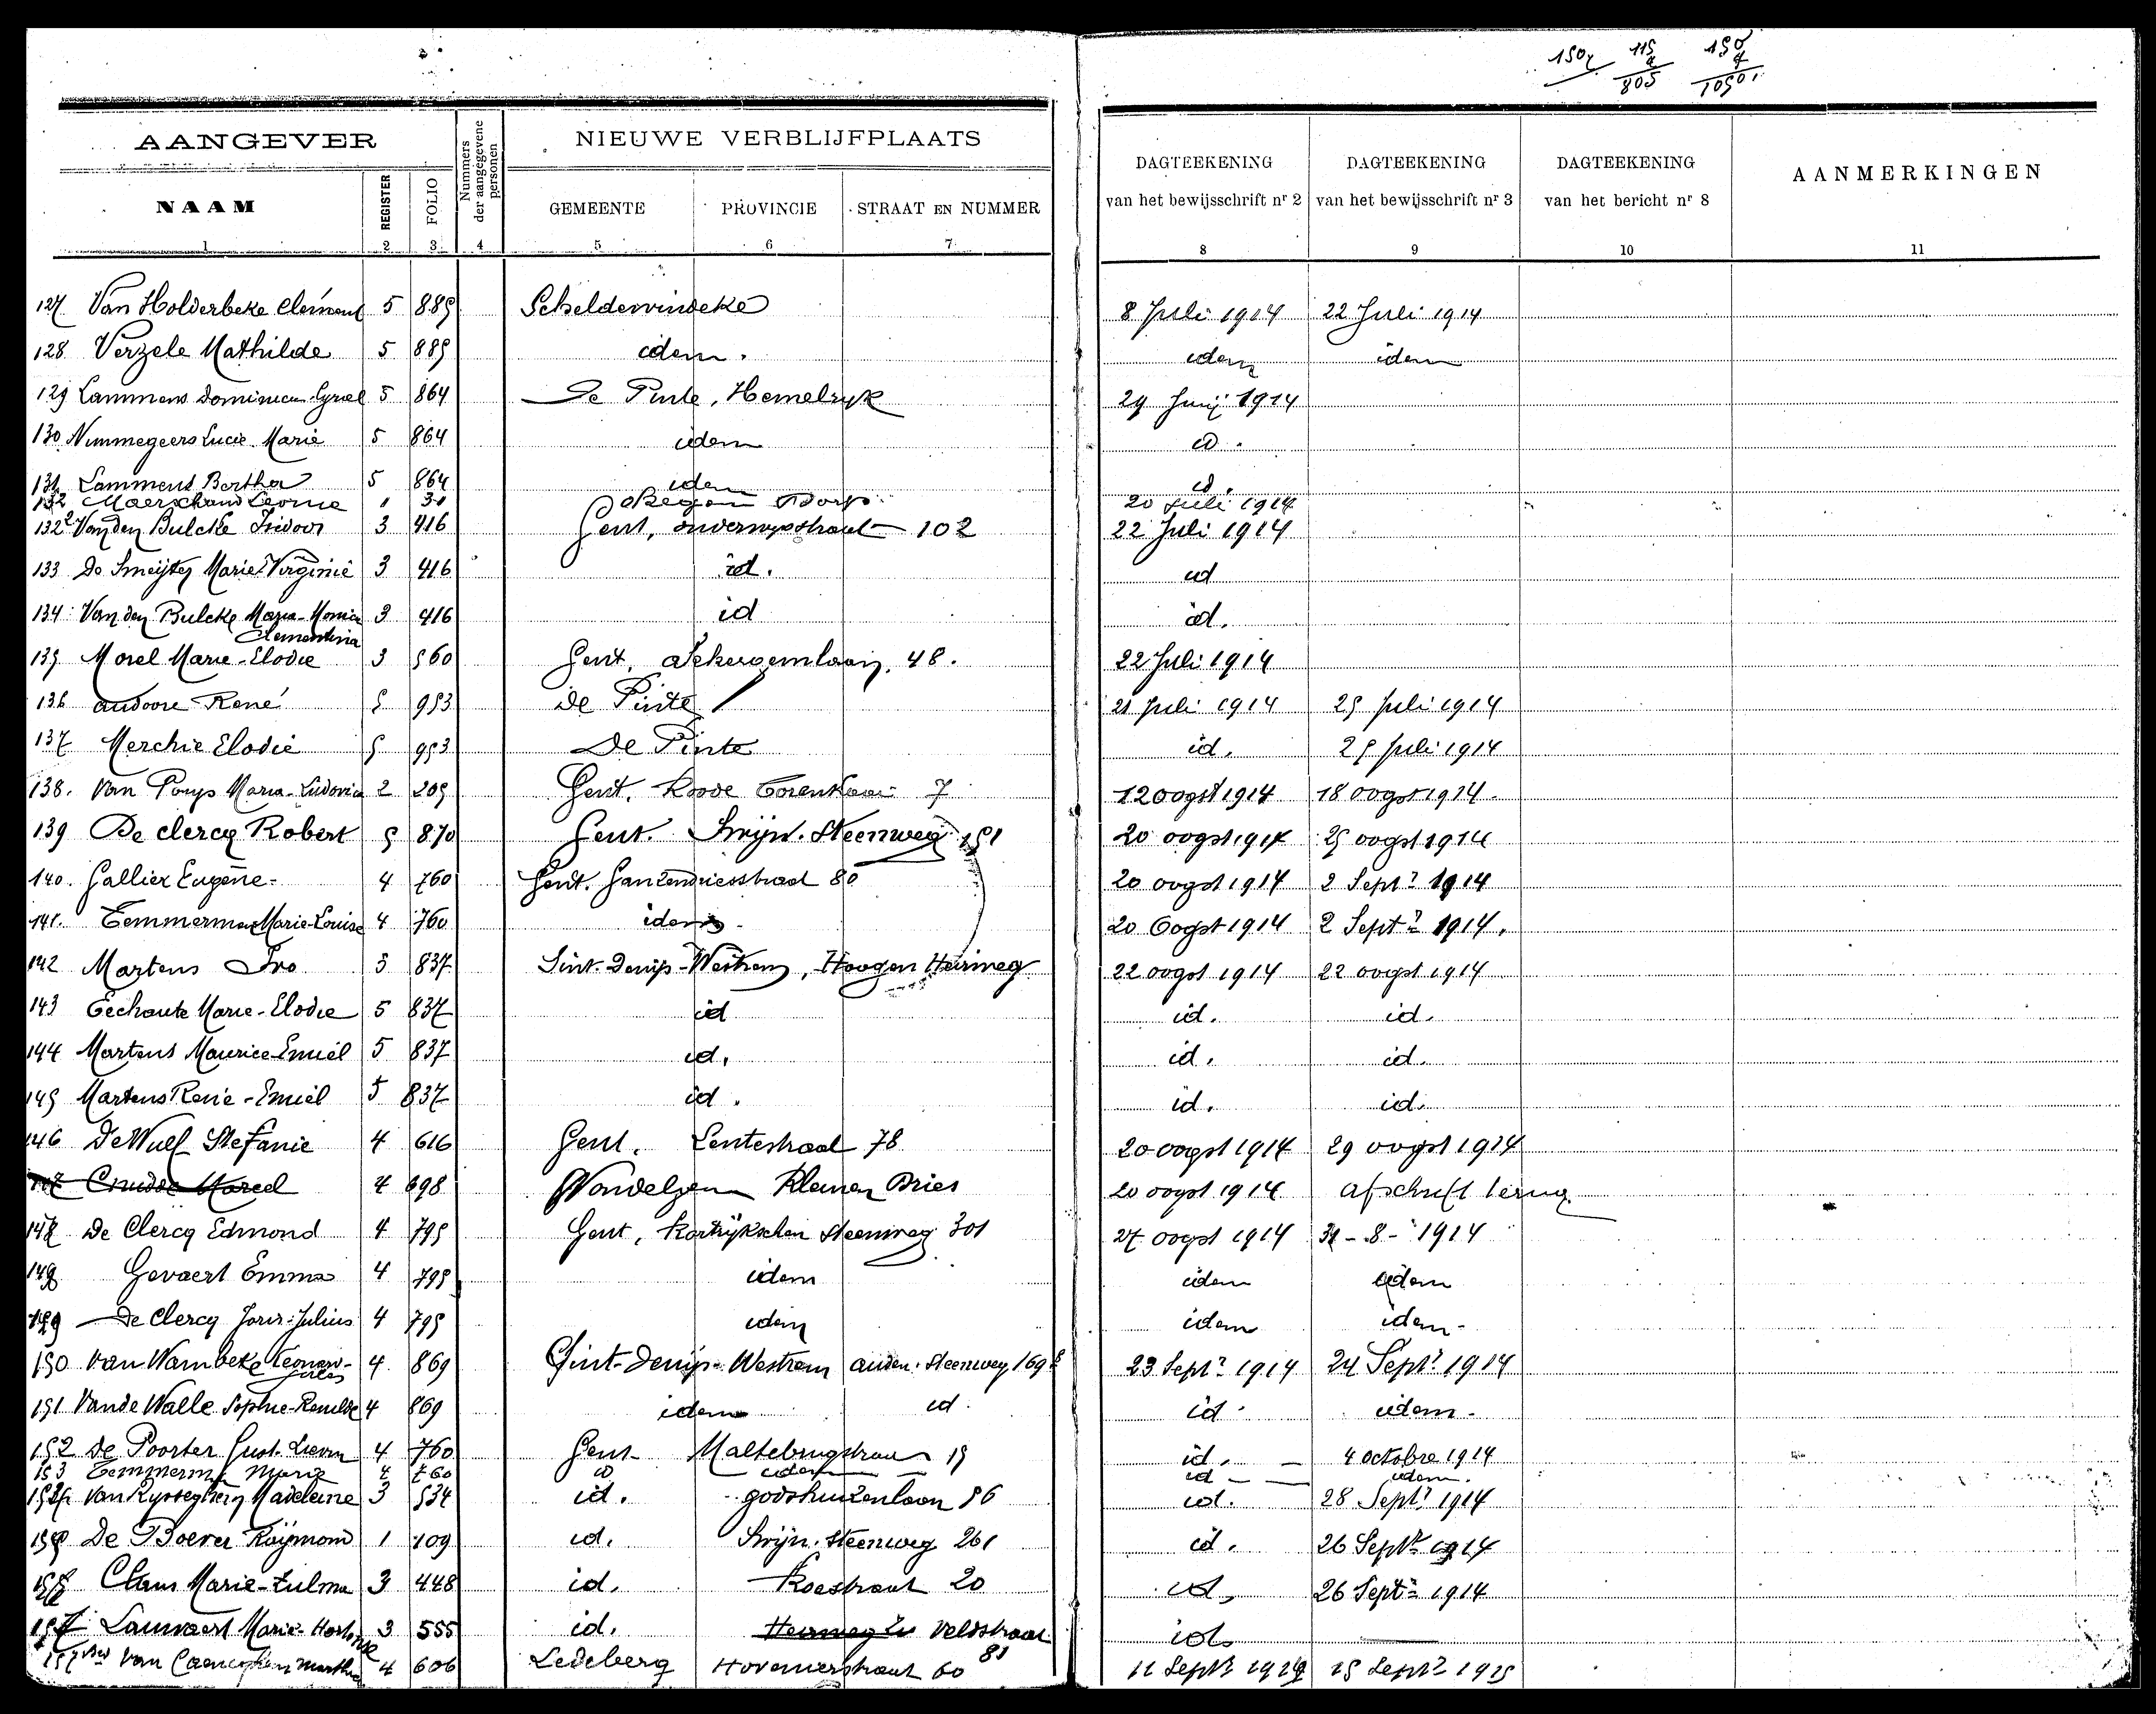 150 7 115 7 805 150 7 1050
AANGEVER
Nummers der aangegevene personen
NIEUWE VERBLIJFPLAATS
NAAM REGISTER FOLIO GEMEENTE PROVINCIE STRAAT EN NUMMER
DAGTEEKENING van het bewijsschrift nr 2
DAGTEEKENING van het bewijsschrift nr 3
DAGTEEKENING van het bericht nr 8
AANMERKINGEN
1 2 3 4 5 6 7 8 9 10 11
127 Van Holderbeke Clement 5 885 Scheldewindeke 8 Juli 1914 22 Juli 1914
128 Verzele Mathilde 5 885 idem. idem idem
129 Lammens Dominicus Cyriel 5 864 De Pinte, Hemelryk 29 Junij 1914
130 Nimmegeers Lucie Marie 5 864 idem id.
131 Lammens Bertha 5 864 idem id.
132 Leonie 1 31 dorp 20 Juli 1914
132² Vanden Bulcke Isidoor 3 416 Gent, 102 22 Juli 1914
133 De Smeijter Marie Virginie 3 416 id. id
134 Van den Bulcke Maria-Monica Clementina 3 416 id id.
135 Morel Marie-Elodie 3 560 Gent, 48. 22 Juli 1914
136 Audoore René 5 953 De Pinte 21 Juli 1914 25 Juli 1914
137 Merchie Elodie 5 953 De Pinte id. 25 Juli 1914
138. Van Parys Maria-Ludovica 2 205 Gent. Roode Torenkaai 7 12 oogst 1914 18 oogst 1914.
139 De Clercq Robert 5 870 Gent. Swijn. Steenweg 151 20 oogst 1914 25 oogst 1914
140. Gallier Eugène 4 760 Gent. Ganzendriesstraat 80 20 oogst 1914 2 Sept? 1914
141. Temmerman Marie-Louise 4 760 idem 20 Oogst 1914 2 Sept? 1914.
142 Martens Ivo 5 837 Sint-Denijs-Westrem, Hoogen Heirweg 22 oogst 1914 22 oogst 1914
143 Eechaute Marie-Elodie 5 837 id id. id.
144 Martens Maurice Emiel 5 837 id. id. id.
145 Martens René-Emiel 5 837 id. id. id.
146 De Wulf Stefanie 4 616 Gent, Lentestraat 78 20 oogst 1914 29 oogst 1914
147 Crudde Marcel 4 698 Wondelgem Kleinen Dries 20 oogst 1914 afschrift terug
147 De Clercq Edmond 4 795 Gent, Kortrijkschen Steenweg 301 27 oogst 1914 31-8-1914
148 Gevaert Emma 4 795 idem idem idem
149 De Clercq Joris-Julius 4 795 idem idem idem-
150 Van Wambeke 4 869 Sint-Denijs-Westrem auden. Steenweg 169 23 Sept? 1914 24 Sept? 1914
151 Van de Walle Sophie-Renilde 4 869 idem id id idem-
152 De Poorter Gust. Lievin 4 760 Gent- Maltebrugstraat 15 id. 4 octobre 1914
153 Temmerman Marie 4 760 id idem id idem.
154 Van Ryssegheny Madeleine 3 534 id. godshuizenlaan 56 id. 28 Sept? 1914
155 De Boever Raijmond 1 109 id. Swijn. Steenweg 261 id. 26 Sept? 1914
156 Claus Marie-Zulma 3 448 id. Koestraat 20 id, 26 Sept? 1914
157 Lauwaert Marie-Hortense 3 555 id. Veldstraat 81 id.
157 bis Van Martha 4 606 Ledeberg Hoveniersstraat 60 11 Sept? 15 Sept? 1915